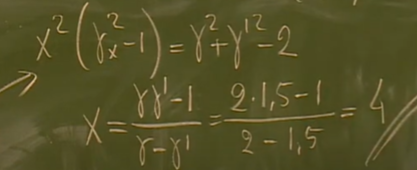 x²(γₓ²-1)=γ²+γ'²-2
x=(γγ'-1)/(γ-γ')=(2·1,5-1)/(2-1,5)=4